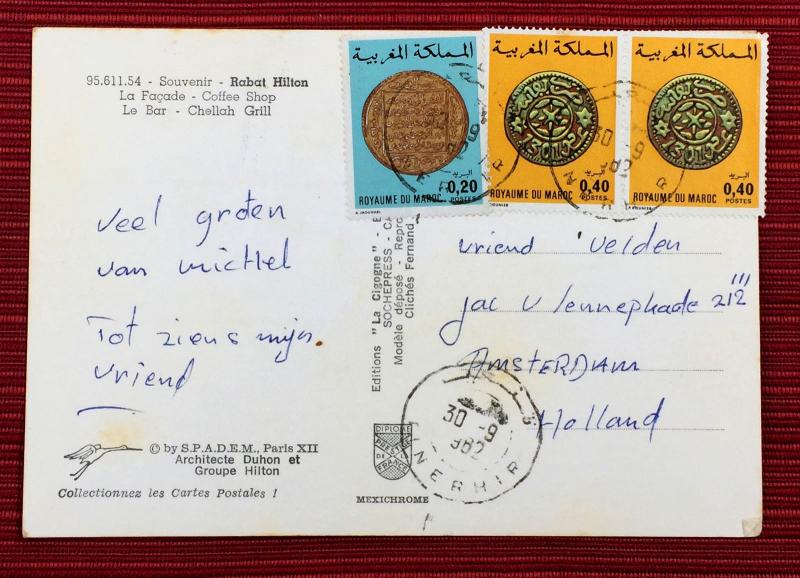 95.611.54 - Souvenir - Rabat Hilton
La Façade - Coffee Shop
Le Bar - Chellah Grill
veel groten
van michel
Tot ziens mijn
vriend
© by S.P.A.D.E.M., Paris XII
Architecte Duhon et
Groupe Hilton
Collectionnez les Cartes Postales !
Editions "La Cigogne" -
SOCHEPRESS - CA
Modèle déposé - Repro
Clichés Fernand
DIPLOME
PRESTIGE
DE
FRANCE
MEXICHROME
المملكة المغربية
0,20
ROYAUME DU MAROC
المملكة المغربية
البريد
0,40
ROYAUME DU MAROC POSTES
المملكة المغربية
البريد
0,40
ROYAUME DU MAROC POSTES
vriend Velden
Jac v Lennepkade 212 III
AMSTERDAM
Holland
30 -9
982
INERHIR